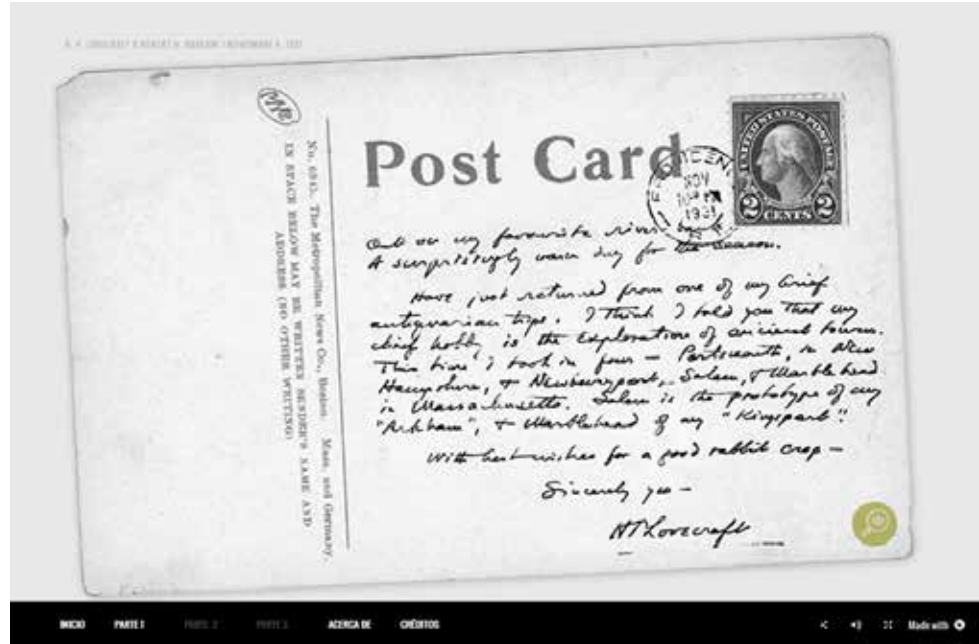 H. P. LOVECRAFT A ROBERT H. BARLOW / NOVIEMBRE 4, 1931
No. 6943. The Metropolitan News Co., Boston, Mass. and Germany.
IN SPACE BELOW MAY BE WRITTEN SENDER'S NAME AND
ADDRESS (NO OTHER WRITING)
Post Card
UNITED STATES POSTAGE
2 CENTS 2
NOV
1931
Out on my favourite river
A surprisingly warm day for the season.
Have just returned from one of my brief
antiquarian trips. I think I told you that my
chief hobby is the exploration of ancient towns.
This time I took in four — Portsmouth, in New
Hampshire, & Newburyport, Salem, & Marblehead
in Massachusetts. Salem is the prototype of my
"Arkham", & Marblehead of my "Kingsport".
With best wishes for a good rabbit crop —
Sincerely yrs —
HPLovecraft
INICIO PARTE 1 PARTE 2 PARTE 3 ACERCA DE CRÉDITOS Made with